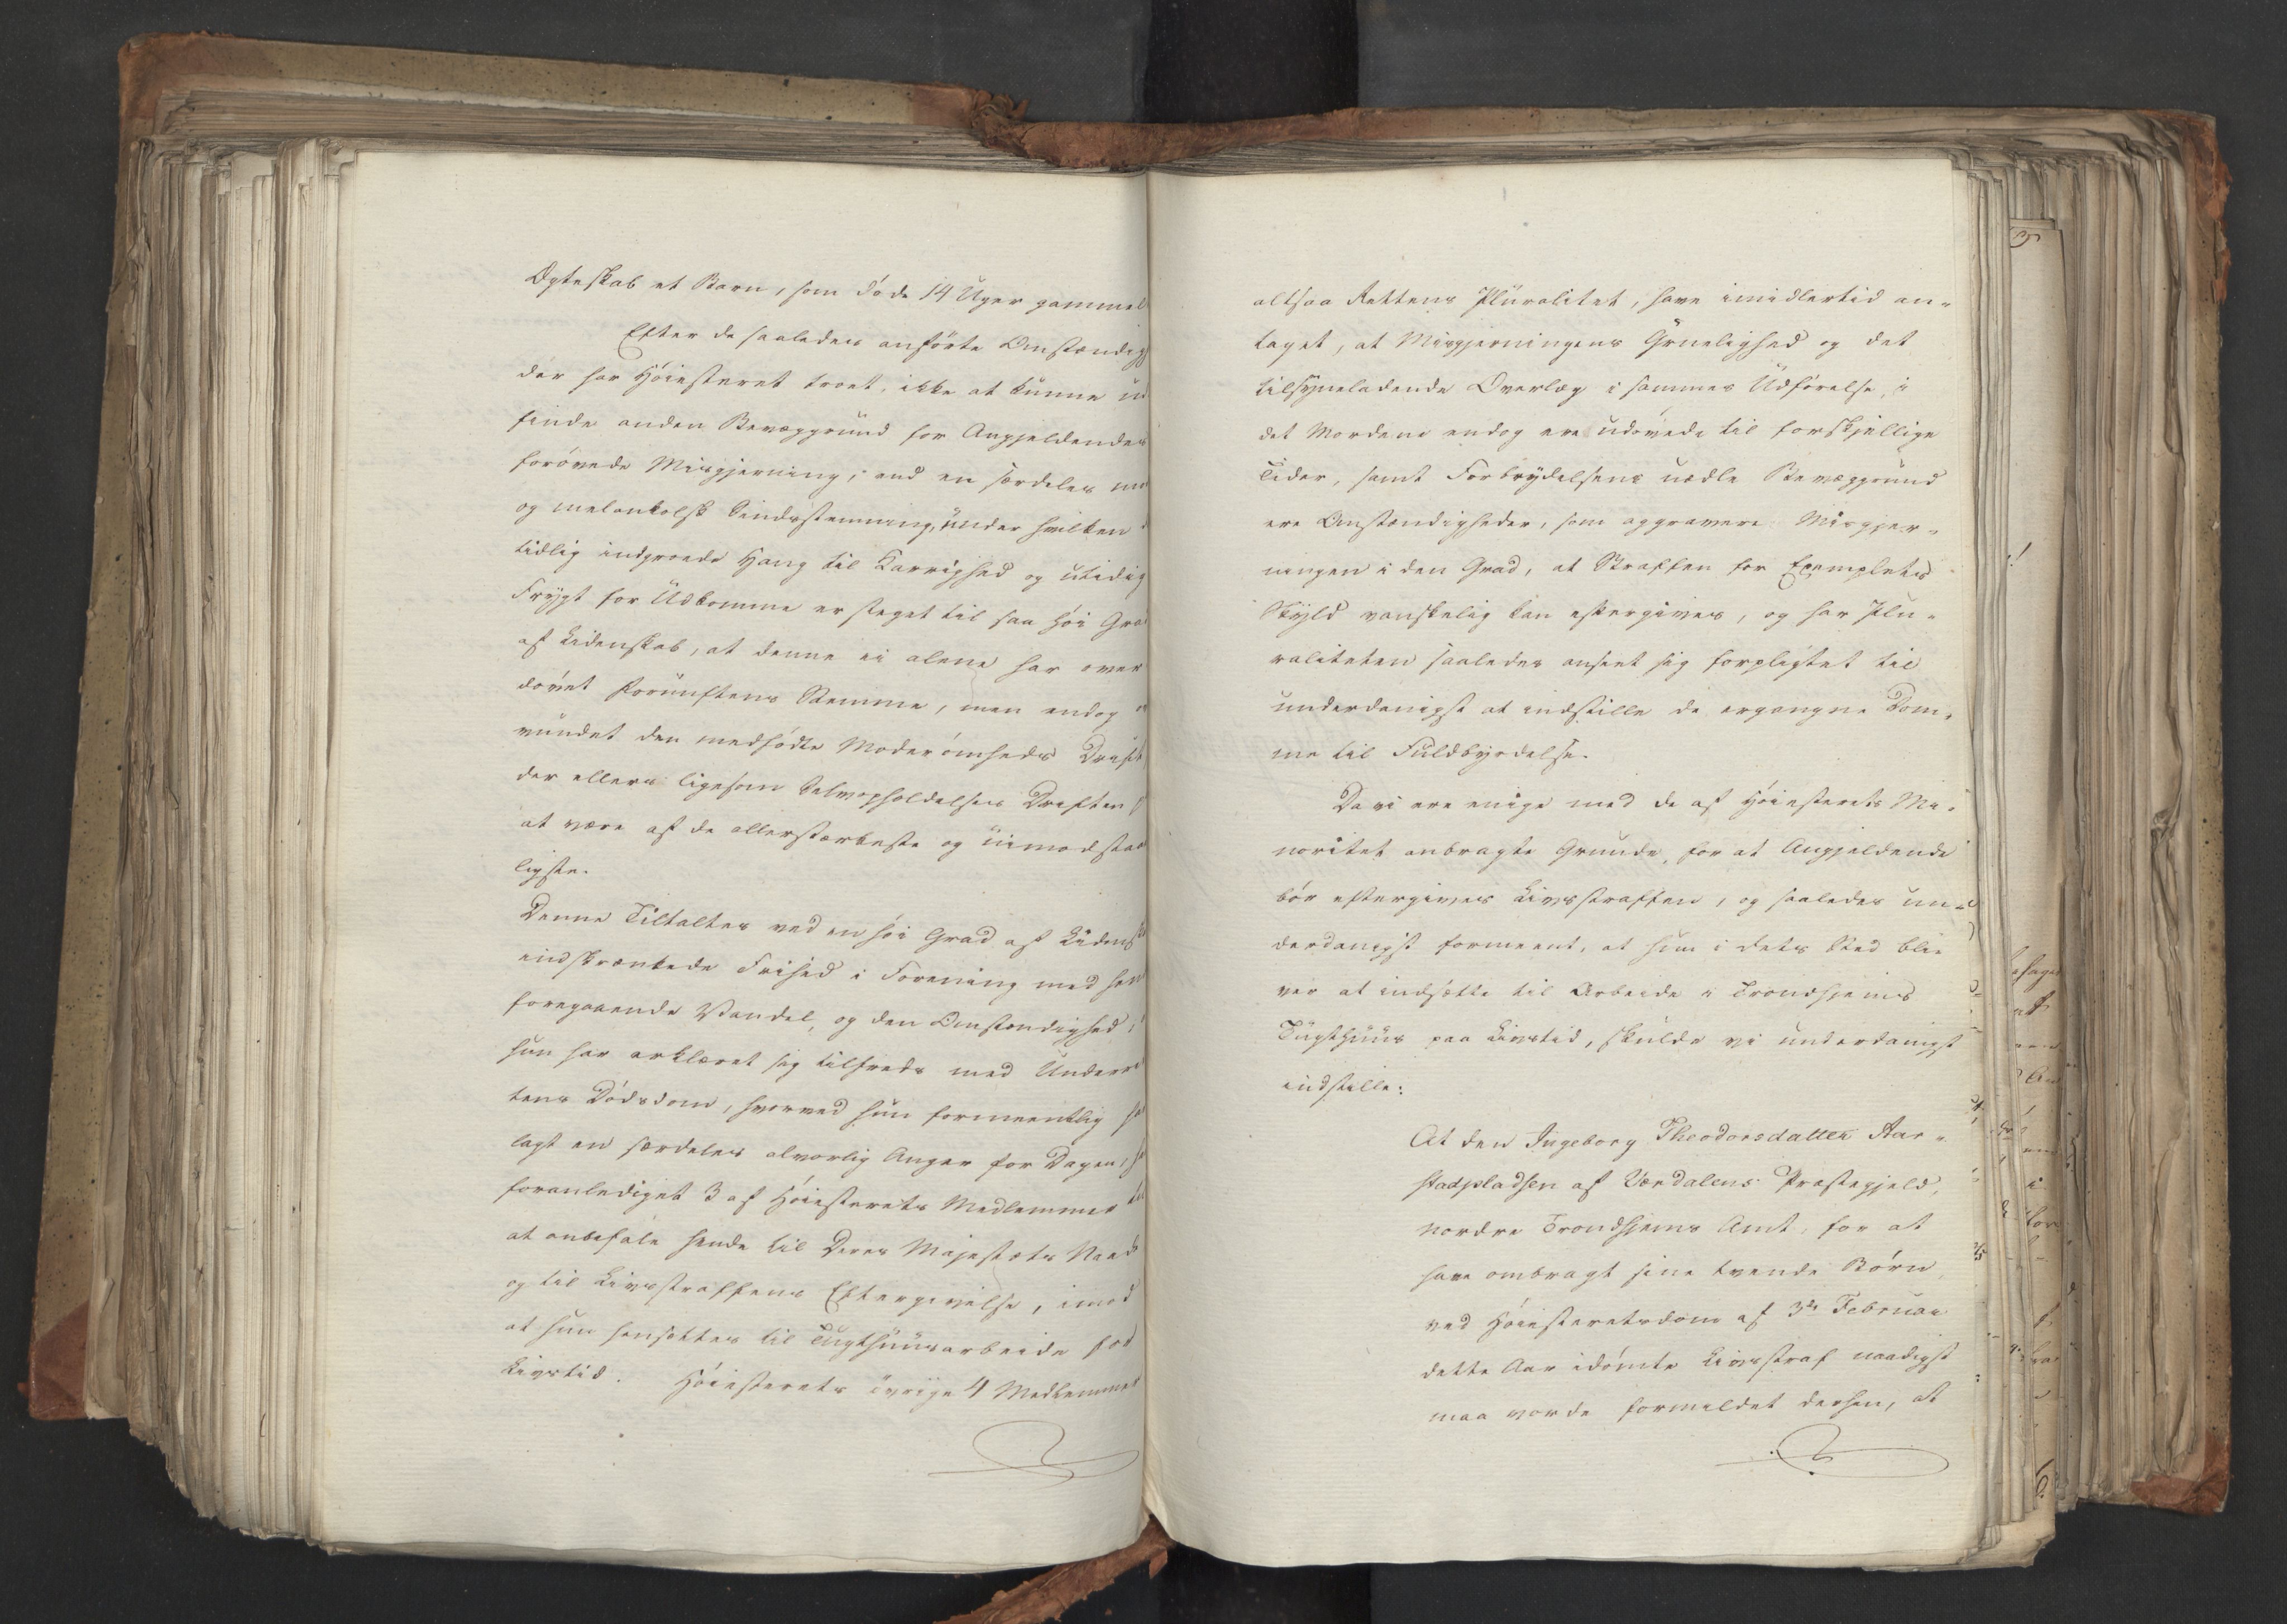 Ægteskab et Barn, som døde 14 Uger gammel
Efter de saaledes anførte Omstændig
der har Høiesteret troet, ikke at kunne ud
finde anden Bevæggrund for Angjeldendes
forøvede Misgjerning, end en særdeles
og melankolsk Sindsstemning, under hvilken
tidlig indgroede Hang til Karrighed og utidig
Frygt for Udkomme er steget til saa høi Grad
af Lidenskab, at denne ei alene har over
døvet Fornuftens Stemme, men endog
vundet den medfødte Moderømheds Drift,
der ellers ligesom Selvopholdelses Driften
at være af de allerstærkeste og uimodstaae
ligste.
Denne Tiltaltes ved en høi Grad af Lidensk
indskrænkede Frihed i Forening med hen
foregaaende Vandel, og den Omstændighed,
hun har erklæret sig tilfreds med Underret
tens Dødsdom, hvorved hun formeentlig
lagt en særdeles alvorlig Anger for Dagen,
foranlediget 3 af Høiesterets Medlemmer til
at anbefale hende til Deres Majestæts Naade
og til Livsstraffens Eftergivelse, imod
at hun hensættes til Tugthuusarbeide for
Livstid. Høiesterets övrige 4 Medlemmer
altsaa Rettens Pluralitet, have imidlertid an-
taget, at Misgjerningens Gruelighed og det
tilsyneladende Overlæg i sammes Udførelse, i
det Mordene endog ere udøvede til forskjellige
Tider, samt Forbrydelsens uædle Bevæggrund
ere Omstændigheder, som aggravere Misgjer-
ningen i den Grad, at Straffen for Exemplets
Skyld vanskelig kan eftergives, og har Plu-
raliteten saaledes anseet sig forpligtet til
underdanigst at indstille de ergangne Dom-
me til Fuldbyrdelse.
Da vi ere enige med de af Høiesterets Mi-
noritet anbragte Grunde, for at Angjeldende
bør eftergives Livsstraffen, og saaledes un-
derdanigst formeent, at hun i dets Sted bli-
ver at indsætte til Arbeide i Trondhjems
Tugthuus paa Livstid, skulde vi underdanigst
indstille:
At den Ingeborg Theodorsdatter Aar-
stadpladsen af Værdalens Præstegjeld,
nordre Trondhjems Amt, for at
have ombragt sine tvende Børn,
ved Høiesteretsdom af 3de Februar
dette Aar idømte Livsstraf naadigst
maa vorde formildet derhen, at